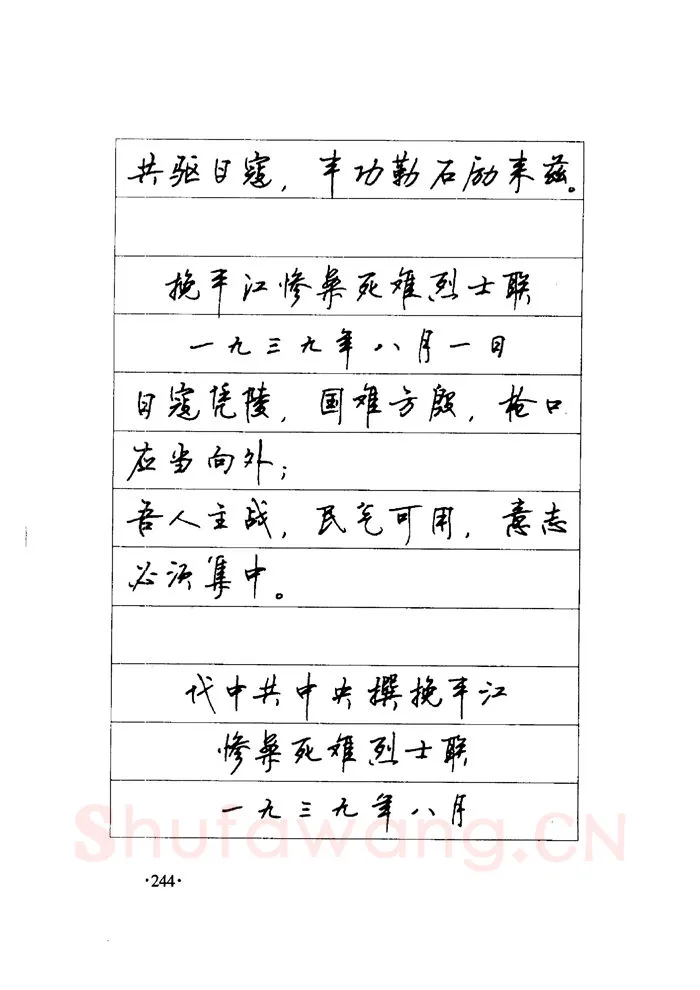 共驱日寇，丰功勒石励来兹。
挽平江惨案死难烈士联
一九三九年八月一日
日寇凭陵，国难方殷，枪口
应当向外；
吾人主战，民气可用，意志
必须集中。
代中共中央撰挽平江
惨案死难烈士联
一九三九年八月
Shufawang.CN
·244·